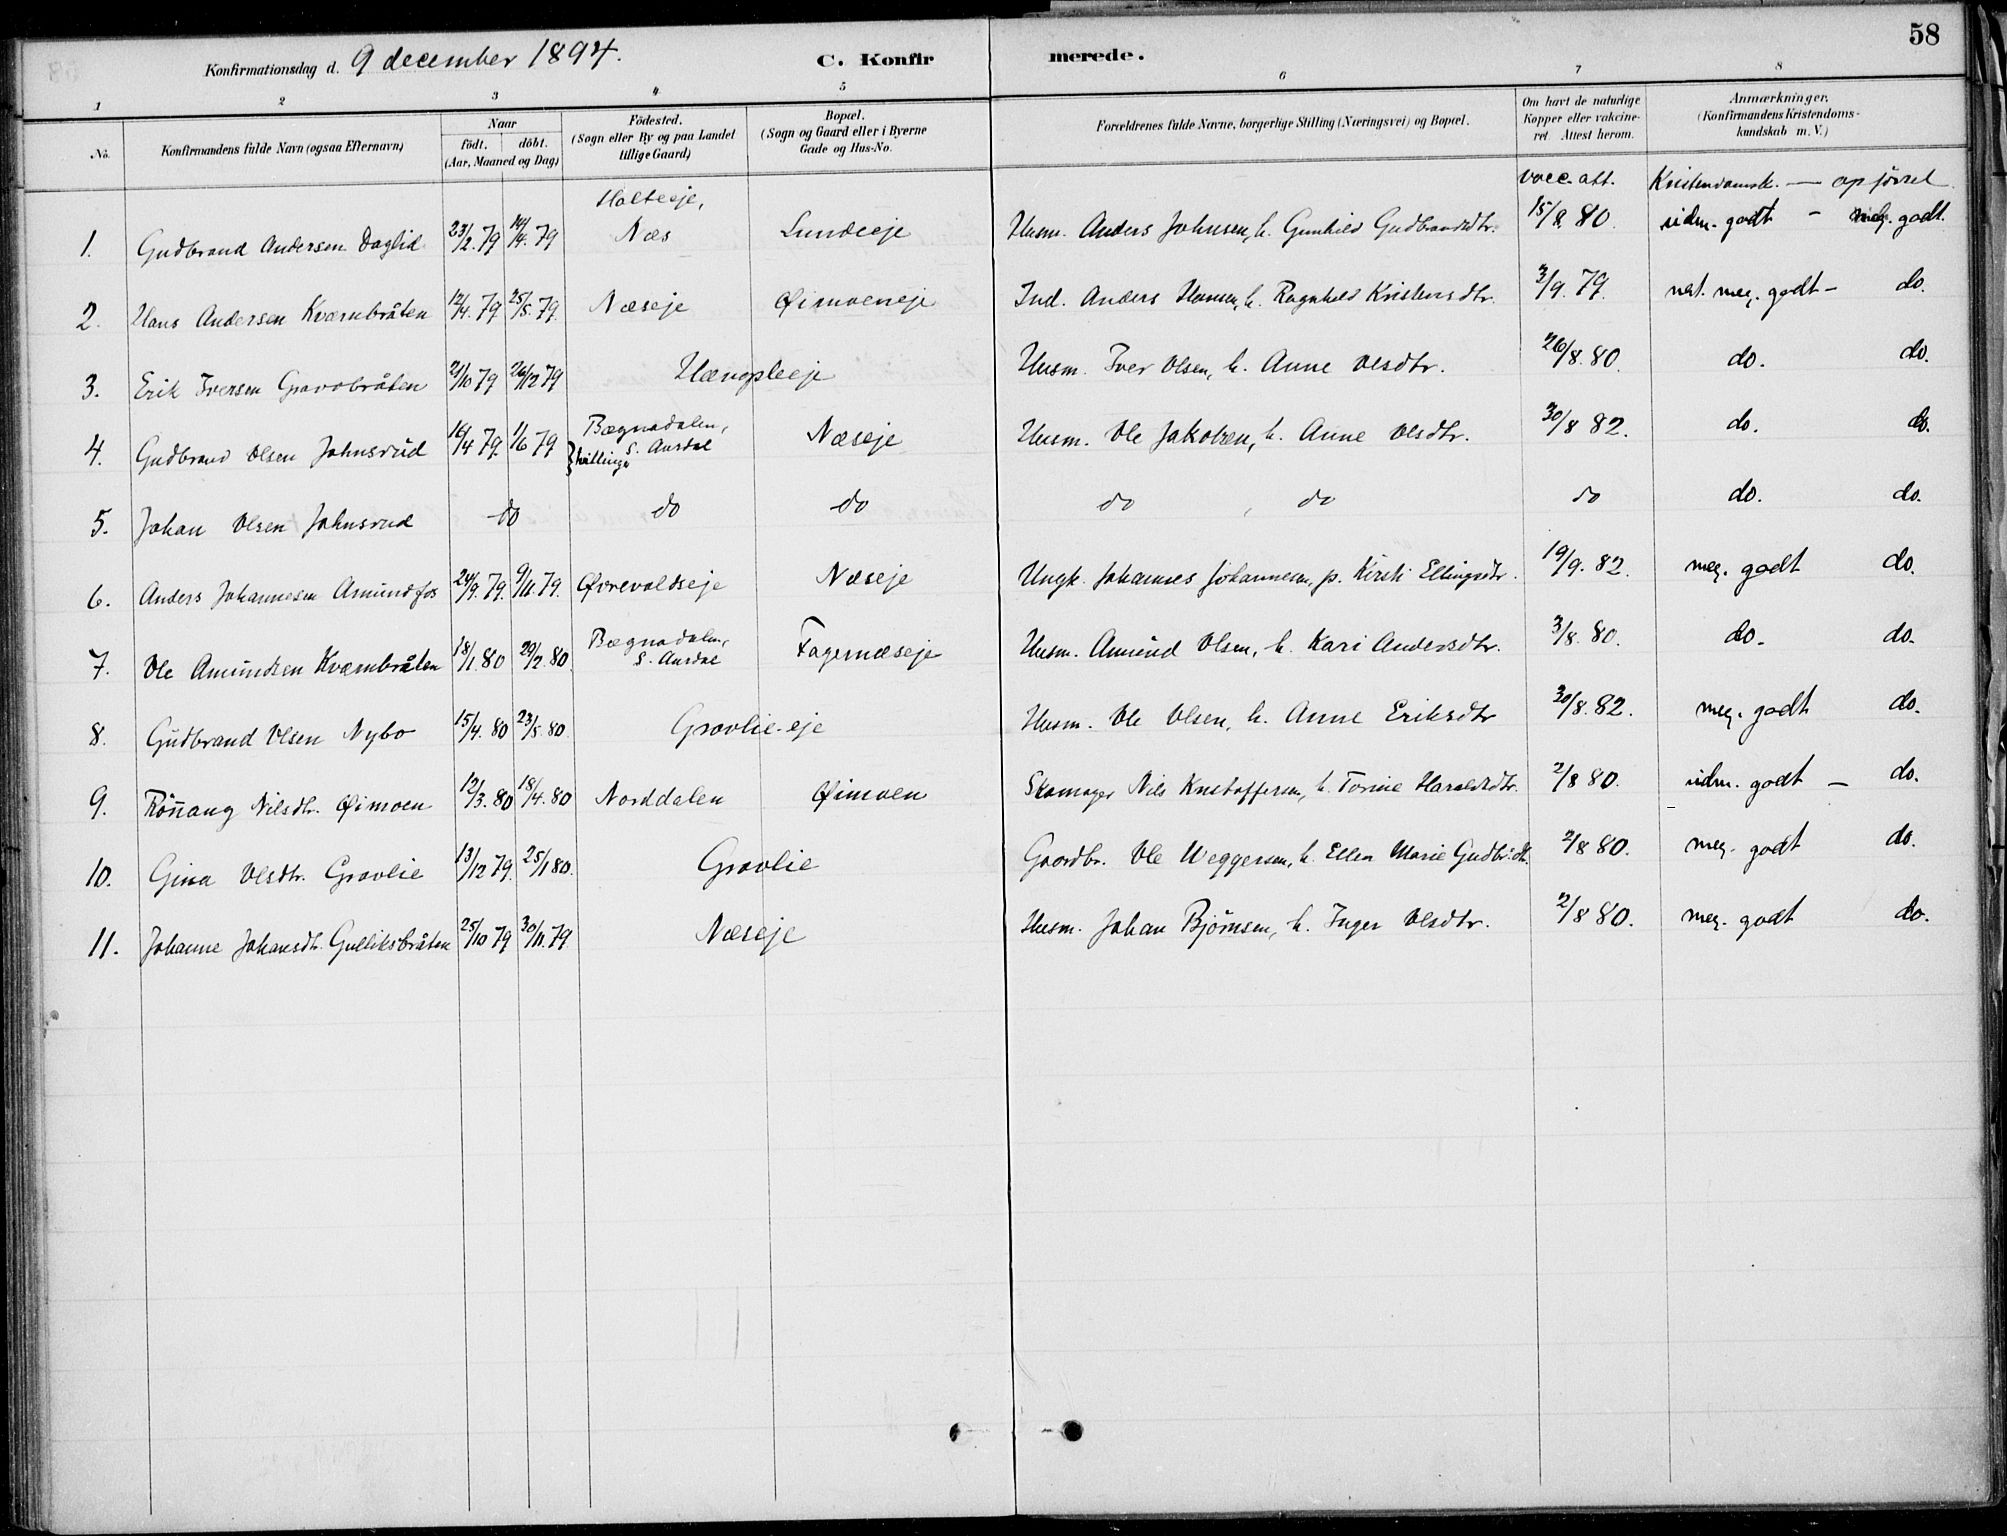 58
Konfirmationsdag d. 9 december 1894. C. Konfirmerede.
1 2 3 4 5 6 7 8
No. Konfirmandens fulde Navn (ogsaa Efternavn) Naar födt. döbt. (Aar, Maaned og Dag) Födested. (Sogn eller By og paa Landet tillige Gaard) Bopæl. (Sogn og Gaard eller i Byerne Gade og Hus-No. Forældrenes fulde Navne, borgerlige Stilling (Næringsvei) og Bopæl. Om havt de naturlige Kopper eller vakcineret. Attest herom. Anmærkninger. (Konfirmandens Kristendomskundskab m. V.)
vacc. att. Kristendomsk. — opførsel
Holteeje,
1. Gudbrand Andersen Daglid 23/2. 79 14/4. 79 Næs Lundeeje Husm. Anders Johnsen, h. Gunhild Gudbrandsdtr. 15/8. 80. udm. godt - meg. godt.
2. Hans Andersen Kværnbråten 12/4. 79 25/5. 79. Næseje Øimoeneje Ind. Anders Hansen, h. Ragnhild Kristensdtr. 3/9. 79. næst. meg. godt - do.
3. Erik Iversen Gravabråten 21/10 79 26/12 79 Hængsleeje Husm. Iver Olsen, h. Anne Olsdtr. 26/8. 80. do. do.
4. Gudbrand Olsen Johnsrud 16/4 79. 1/6 79 Bægnadalen, S. Aurdal } tvillinger Næseje Husm. Ole Jakobsen, h. Anne Olsdtr. 30/8 82. do. do.
5. Johan Olsen Johnsrud do do do do do do do. do.
6. Anders Johannesen Amundfos 24/9. 79. 9/11. 79. Øvrevoldseje Næseje Ungk. Johannes Johannesen, p. Kirsti Ellingsdtr. 19/9. 82. meg. godt do.
7. Ole Amundsen Kværnbråten 18/1. 80 29/2. 80. Bægnadalen, S. Aurdal Fagernæseje Husm. Amund Olsen, h. Kari Andersdtr. 3/8. 80. do. do.
8. Gudbrand Olsen Nybo 15/4. 80 23/5. 80. Gravlie-eje Husm. Ole Olsen, h. Anne Eriksdtr 30/8. 82. meg. godt do.
9. Rönnaug Nilsdtr. Øimoen 12/3. 80 18/4. 80 Norddalen Øimoen Skomager Nils Kristoffersen, h. Torine Haraldsdtr. 2/8 80. udm. godt — do.
10. Gina Olsdtr. Gravlie 13/12 79. 25/1 80. Gravlie Gaardbr. Ole Weggersen, h. Ellen Marie Gudbr.dtr. 2/8 80. meg. godt do.
11. Johanne Johansdtr. Gulliksbråten 25/10 79 30/11. 79 Næseje Husm. Johan Bjørnsen, h. Inger Olsdtr. 2/8 80. meg. godt do.